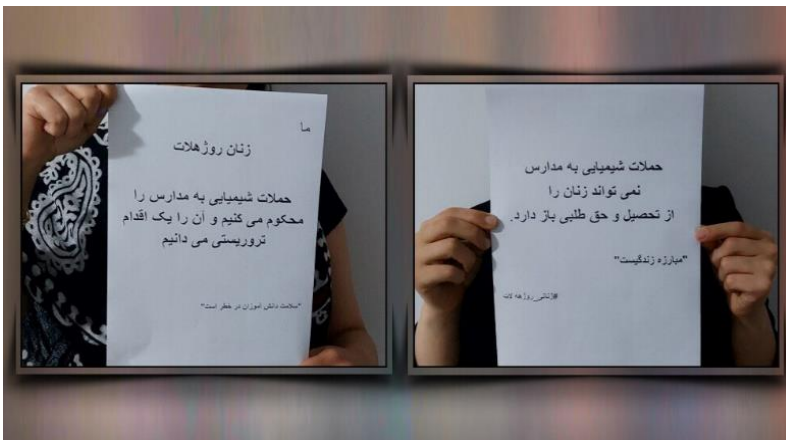 ما
زنان روژهلات
حملات شیمیایی به مدارس را
محکوم می کنیم و آن را یک اقدام
تروریستی می دانیم
"سلامت دانش اموزان در خطر است"
حملات شیمیایی به مدارس
نمی تواند زنان را
از تحصیل و حق طلبی باز دارد.
"مبارزه زندگیست"
#ژنانی_روژهه لات